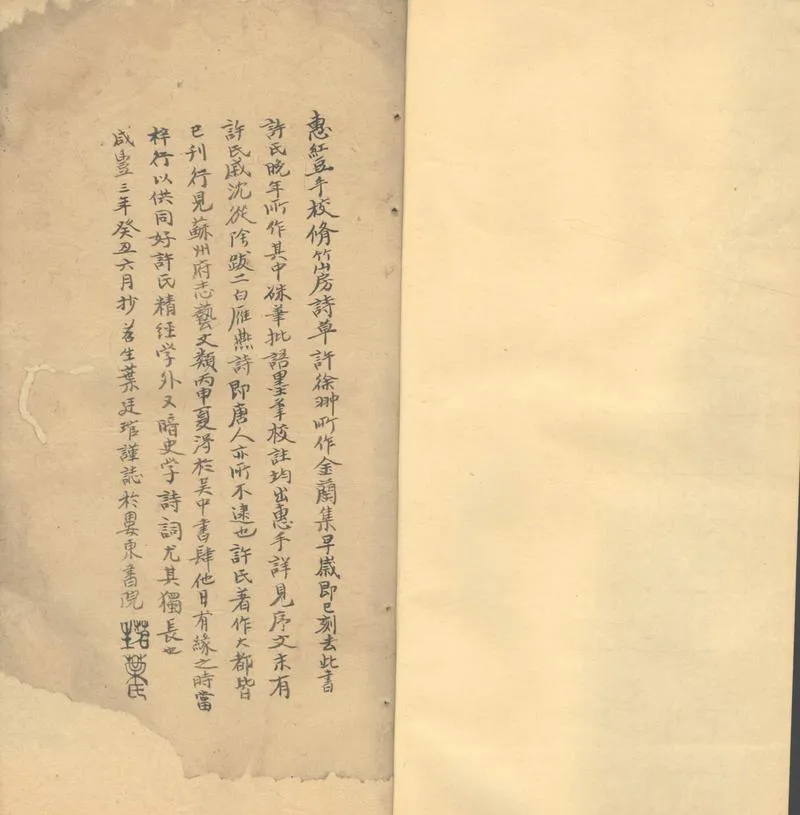 惠紅豆手校脩竹山房詩草許徐翀所作金蘭集早歲即已刻去此書
許氏晚年所作其中硃筆批語墨筆校註均出惠手詳見序文末有
許氏戚沈從隂跋二白雁燕詩即唐人亦所不逮也許氏著作大都皆
已刊行見蘇州府志藝文類丙申夏淂於吴中書肆他日有緣之時當
梓行以供同好許氏精経学外又暗史学詩詞尤其獨長也
咸豐三年癸丑六月抄 生葉廷琯謹誌於婁東書院
葉氏